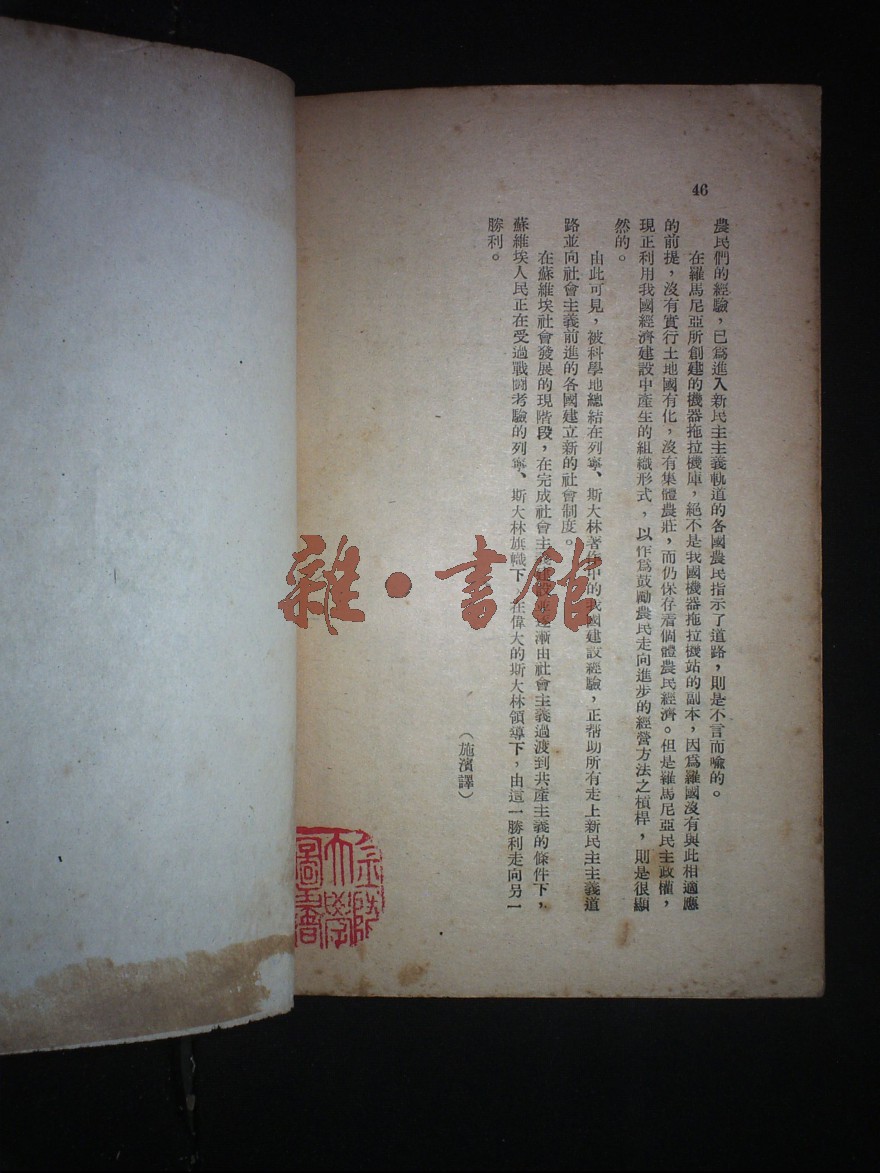 46
農民們的經驗，已爲進入新民主主義軌道的各國農民指示了道路，則是不言而喻的。
在羅馬尼亞所創建的機器拖拉機庫，絕不是我國機器拖拉機站的副本，因爲羅國沒有與此相適應
的前提，沒有實行土地國有化，沒有集體農莊，而仍保存着個體農民經濟。但是羅馬尼亞民主政權，
現正利用我國經濟建設中產生的組織形式，以作爲鼓勵農民走向進步的經營方法之槓桿，則是很顯
然的。
由此可見，被科學地總結在列寧、斯大林著作中的我國建設經驗，正帮助所有走上新民主主義道
路並向社會主義前進的各國建立新的社會制度。
在蘇維埃社會發展的現階段，在完成社會主義建設並逐漸由社會主義過渡到共產主義的條件下，
蘇維埃人民正在受過戰鬪考驗的列寧、斯大林旗幟下，在偉大的斯大林領導下，由這一勝利走向另一
勝利。
（施濱譯）
雜·書館
大學
圖書